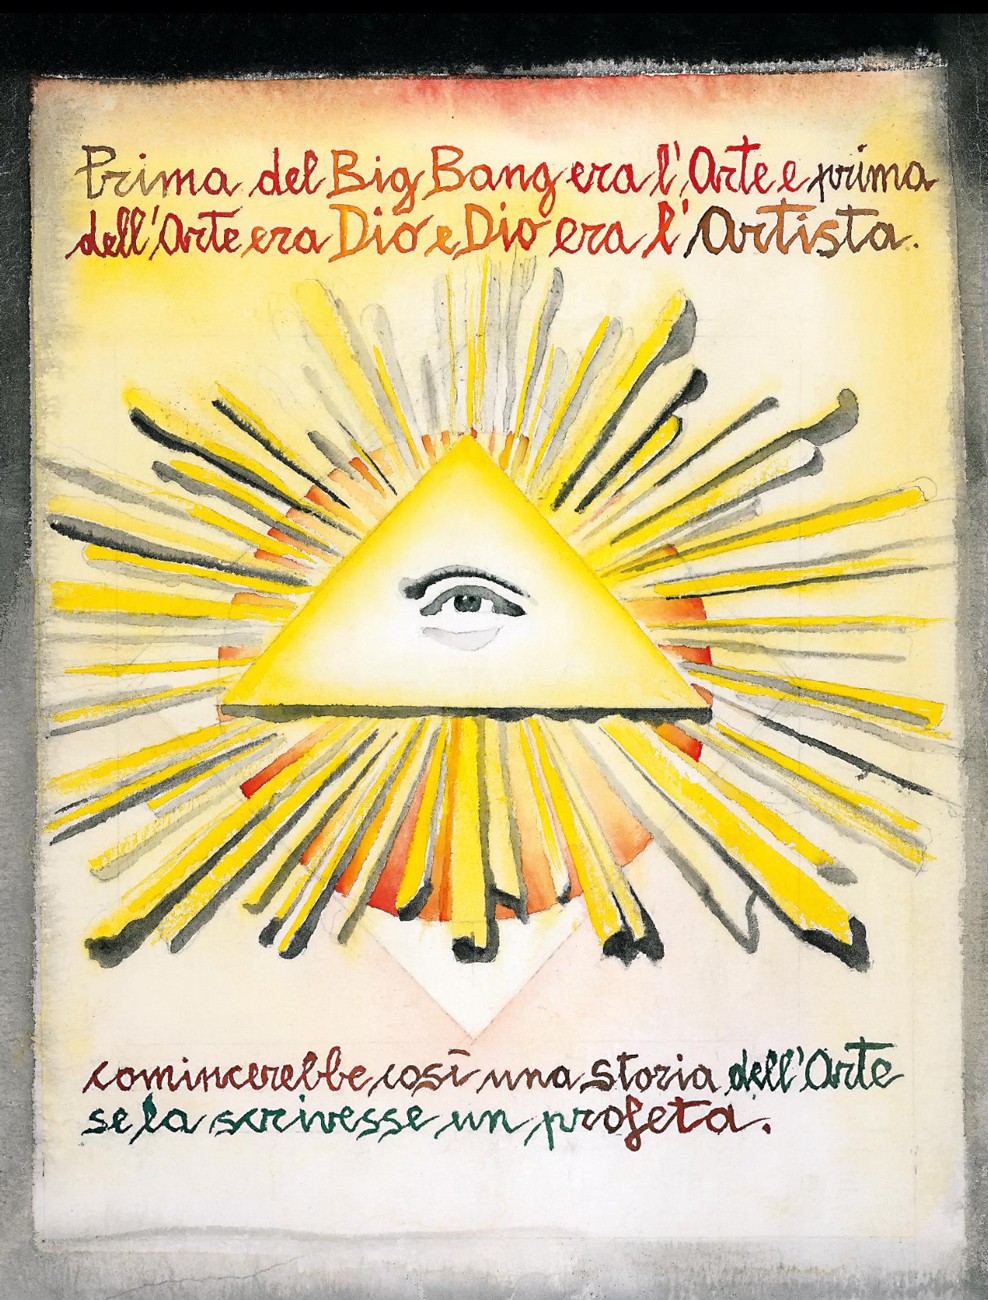 Prima del Big Bang era l'Arte e prima
dell'Arte era Dio e Dio era l'Artista.
comincerebbe così una storia dell'Arte
se la scrivesse un profeta.